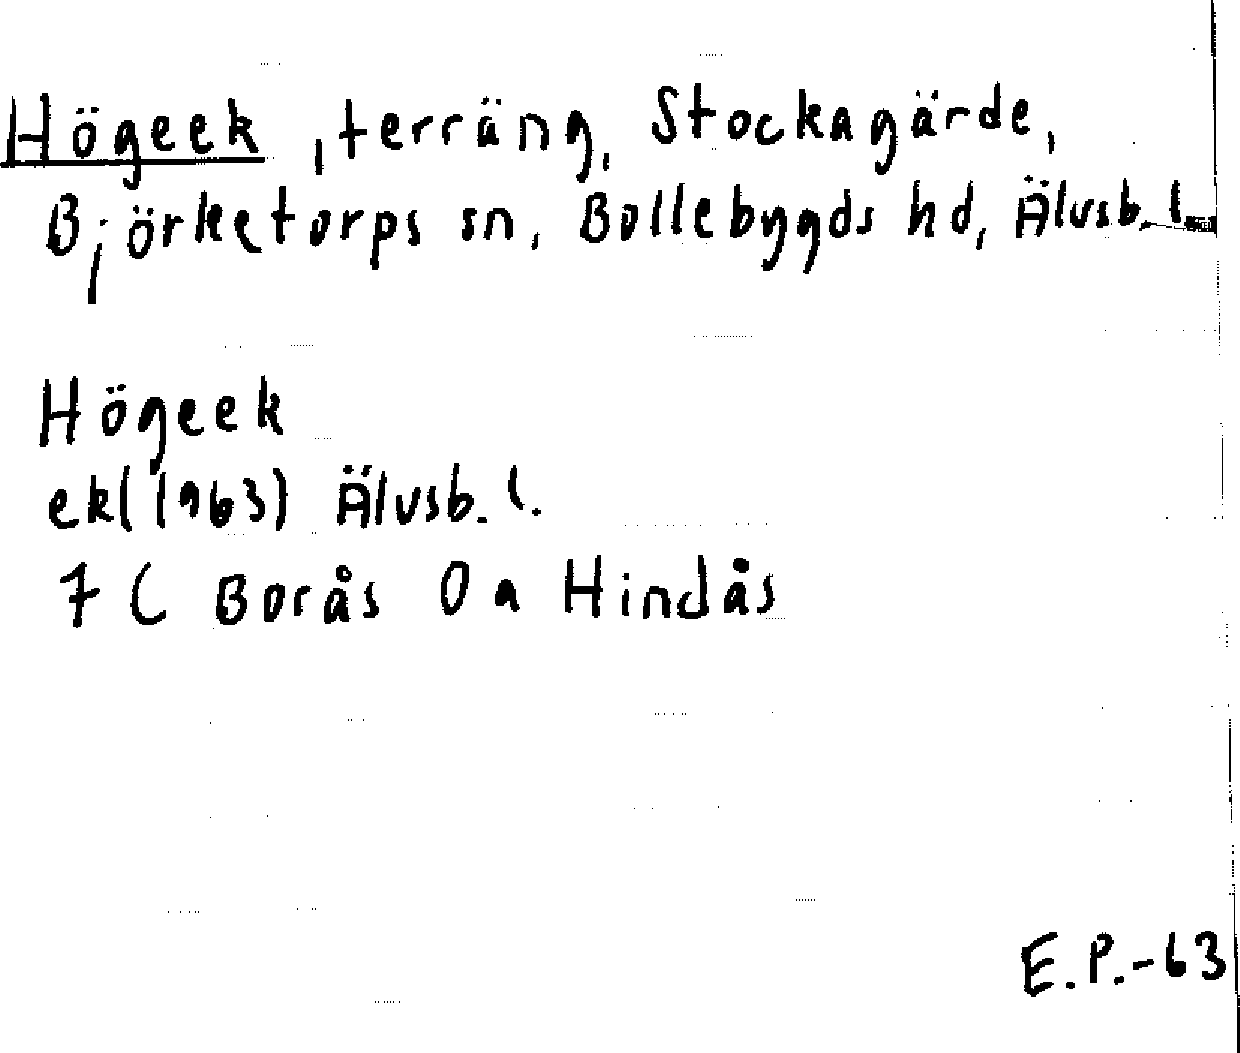 Högeek, terräng, Stockagärde,
Björketorps sn, Bollebygds hd, Älvsb. l.
Högeek
ek(1963) Älvsb. l.
7 C Borås 0 a Hindås
E.P.-63